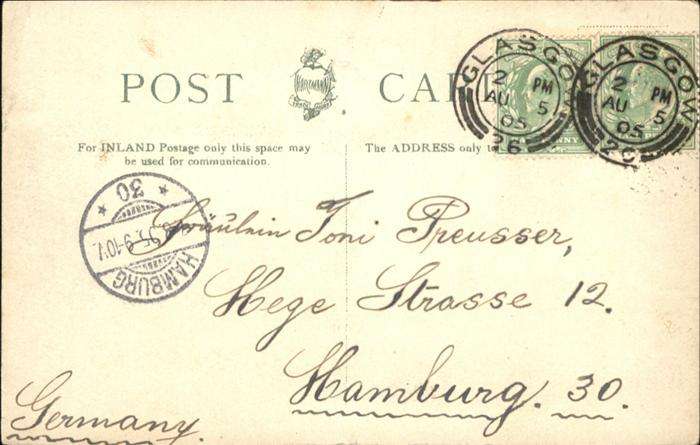 POST CARD
For INLAND Postage only this space may
be used for communication.
The ADDRESS only to
GLASGOW
2 PM
AU 5
05
26
GLASGOW
2 PM
AU 5
05
26
HAMBURG
30
Fräulein Toni Preusser,
Hege Strasse 12.
Hamburg. 30.
Germany.